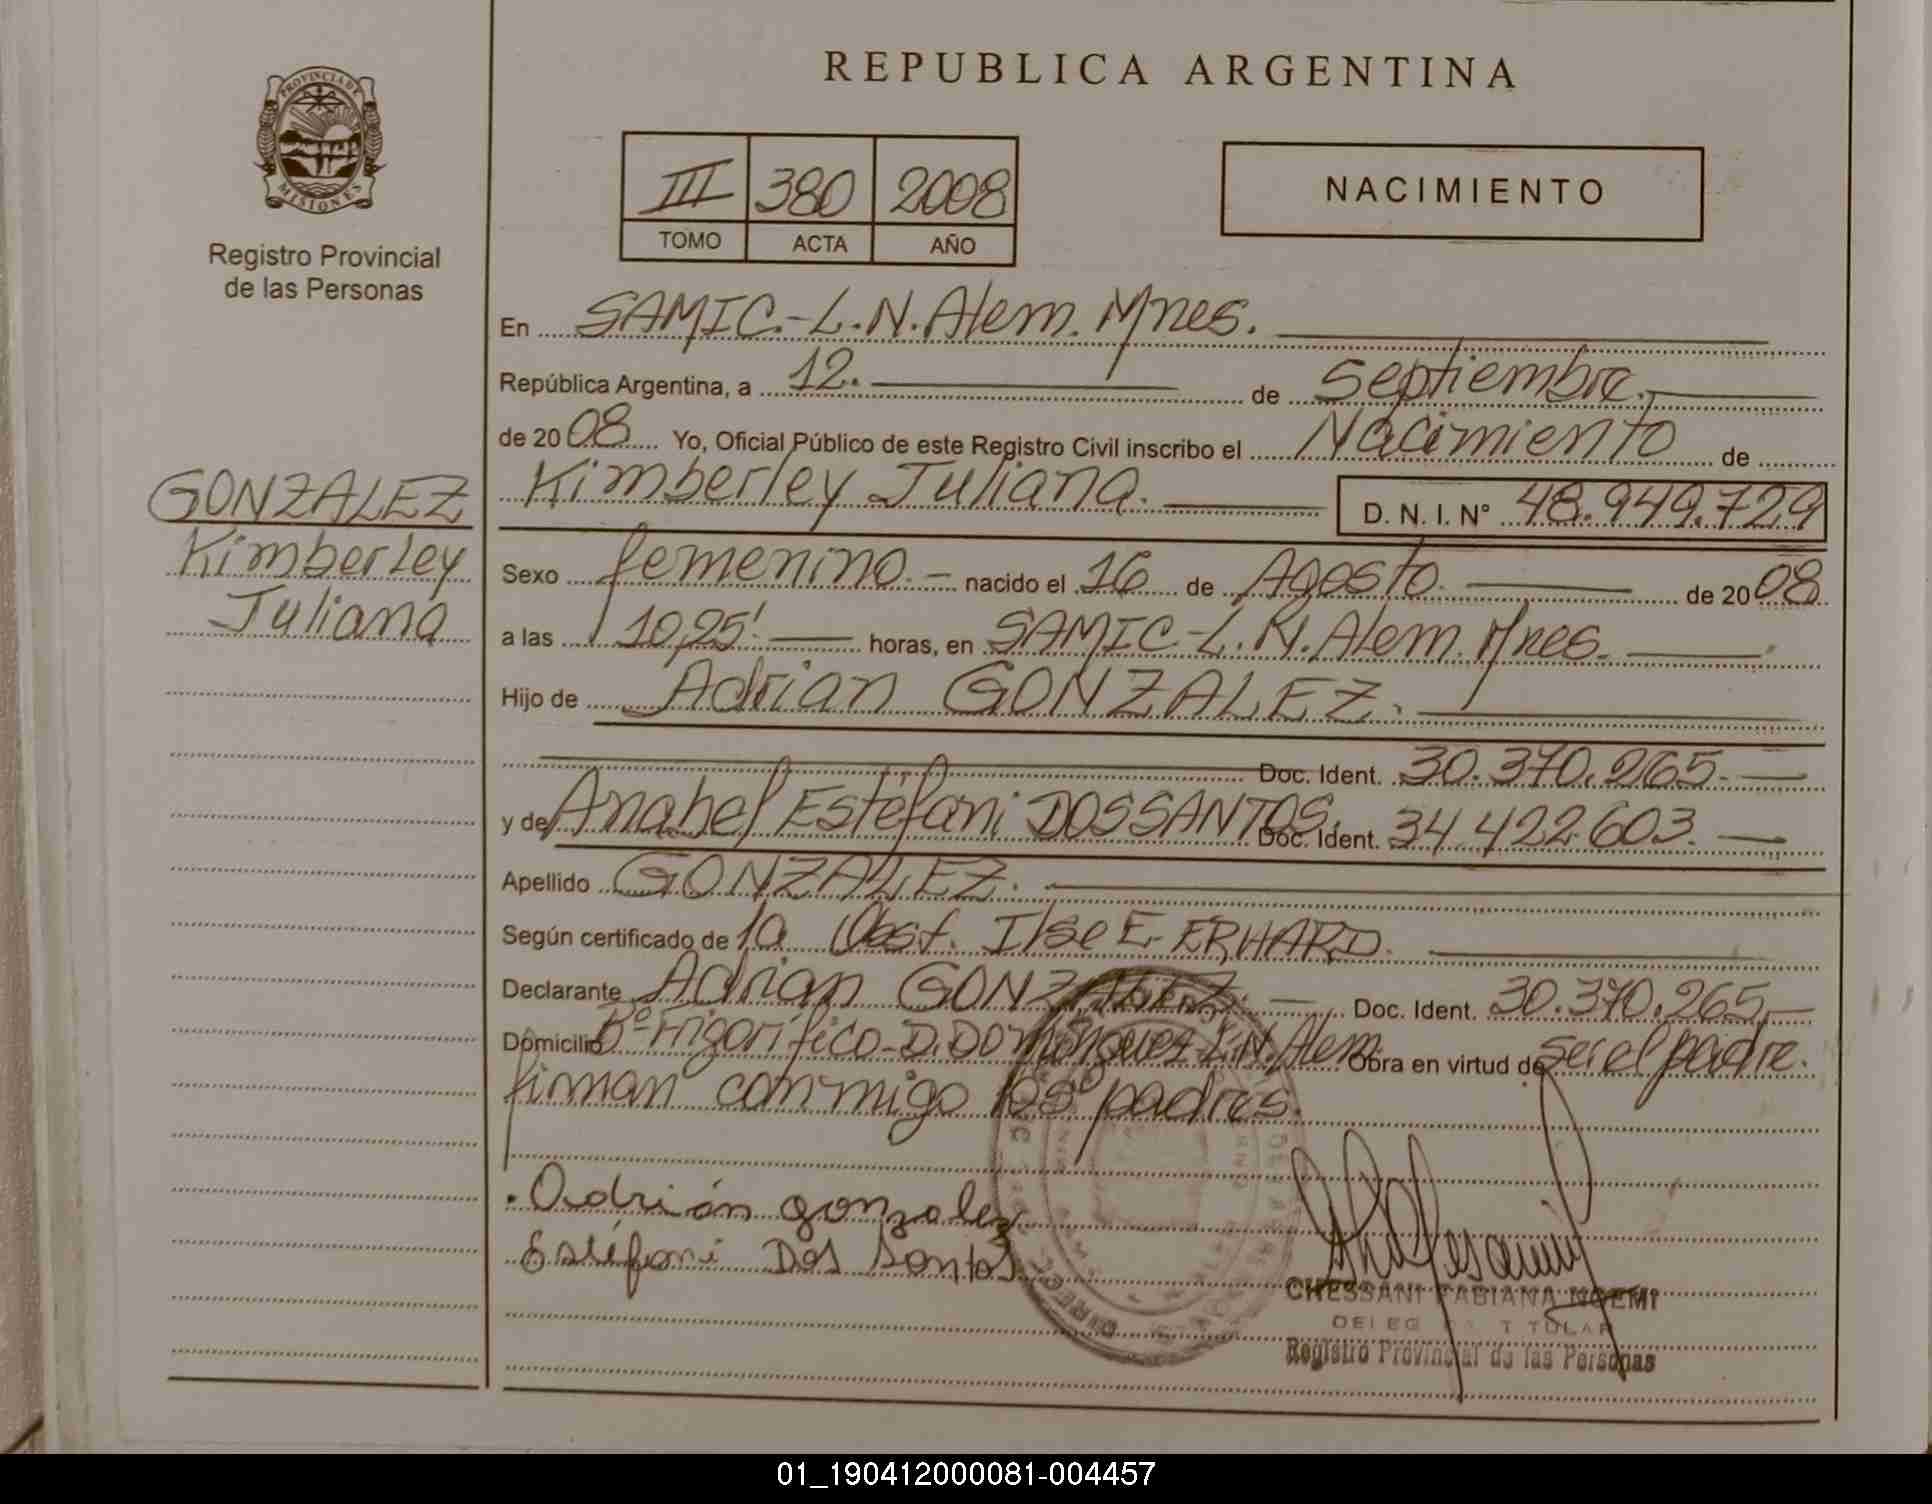 REPUBLICA ARGENTINA
PROVINCIA DE
MISIONES
Registro Provincial
de las Personas
III 380 2008
TOMO ACTA AÑO
NACIMIENTO
En SAMIC.-L.N.Alem. Mnes.
República Argentina, a 12. de Septiembre.
de 2008 Yo, Oficial Público de este Registro Civil inscribo el Nacimiento de
Kimberley Juliana. D. N. I. N° 48.949.729
GONZALEZ
Kimberley
Juliana
Sexo femenino.- nacido el 16 de Agosto. de 2008
a las 10,25'. horas, en SAMIC-L.N.Alem. Mnes.
Hijo de Adrian GONZALEZ.
Doc. Ident. 30.370.265.-
y de Anabel Estéfani DOSSANTOS. Doc. Ident. 34.422.603.-
Apellido GONZALEZ.
Según certificado de la Obsf. Ilse E. ERHARD.
Declarante Adrian GONZALEZ.- Doc. Ident. 30.370.265.-
Domicilio B° Frigorífico-D.Dominguez-L.N.Alem Obra en virtud de ser el padre.
firman conmigo los padres.
. Adrián gonzalez
Estéfani Dos Santos
CHESSANI FABIANA NOEMI
DELEGADA TITULAR
Registro Provincial de las Personas
01_190412000081-004457